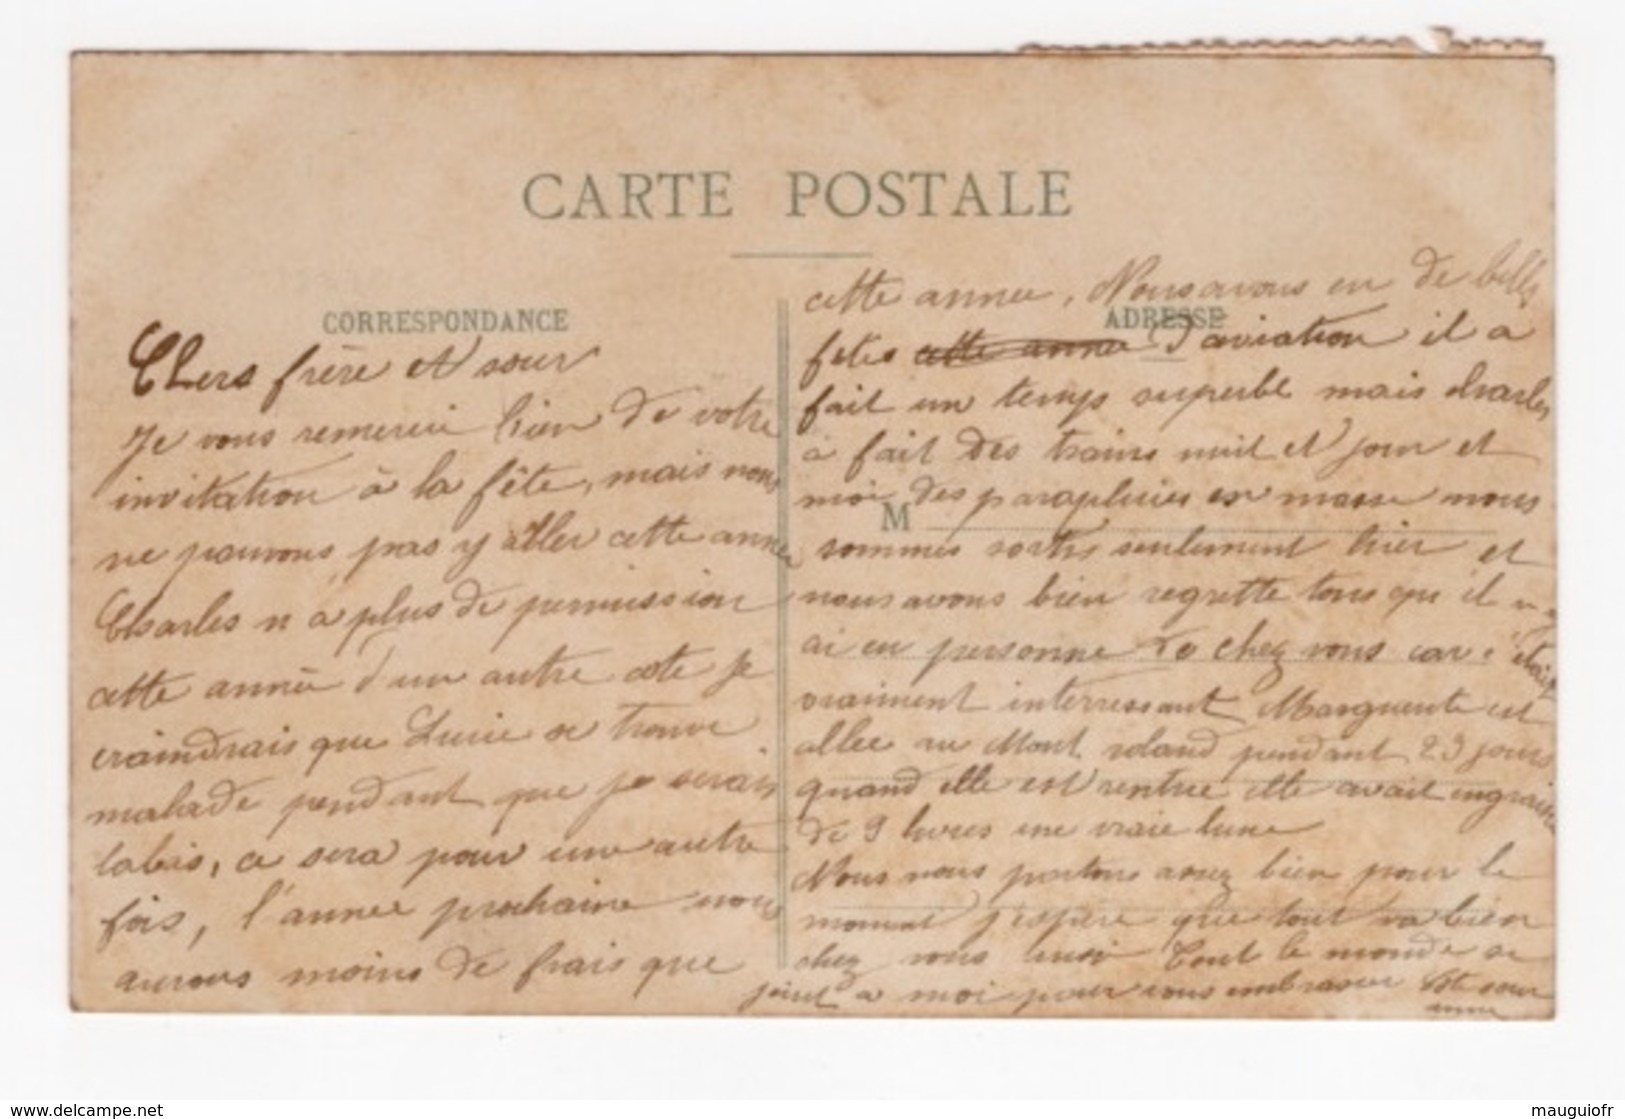 CARTE POSTALE
CORRESPONDANCE
Chers frère et sœur
Je vous remercie bien de votre
invitation à la fête, mais nous
ne pouvons pas y aller cette année
Charles n a plus de permission
cette année d'un autre cote je
craindrais que Lucie se trouve
malade pendant que je serais
labas, ce sera pour une autre
fois, l'année prochaine nous
aurons moins de frais que
cette année, Nous avons eu de belles
ADRESSE
fêtes cette année d aviation il a
fait un temps superbe mais Charles
à fait des trains nuit et jour et
moi des parapluies en masse nous
M
sommes sortis seulement hier et
nous avons bien regretté tous qu il n y
ai eu personne de chez vous car c'était
vraiment interressant Marguerite est
allee au Mont roland pendant 23 jours
quand elle est rentree elle avait engraissé
de 9 livres une vraie lune
Nous nous portons assez bien pour le
moment j'espère que tout va bien
chez vous aussi Tout le monde se
joint a moi pour vous embrasser Vtre sœur
www.delcampe.net
mauguiofr